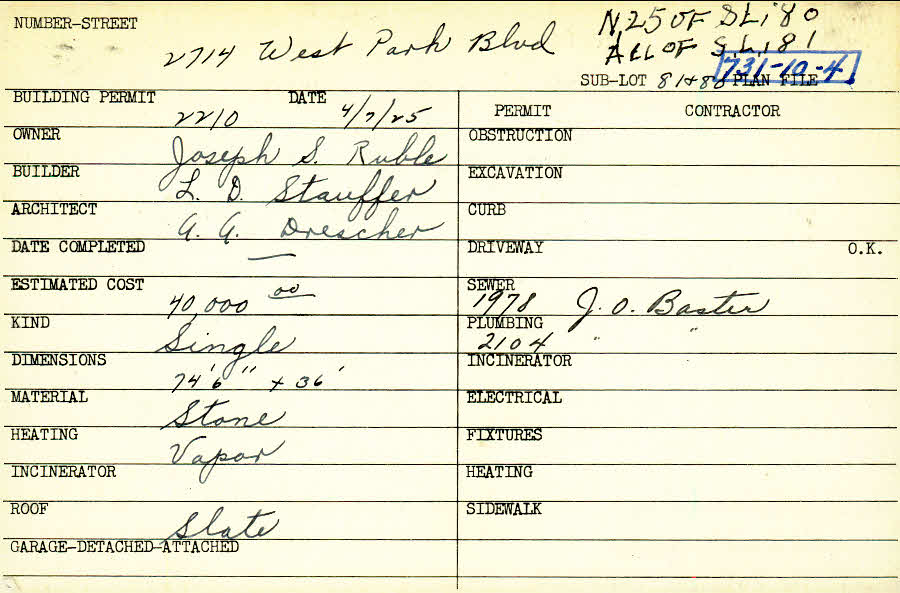 NUMBER-STREET
2714 West Park Blvd
N25 OF SL180
ALL OF S.L.181
731-10-4
SUB-LOT 81+80 PLAN FILE
BUILDING PERMIT 2210 DATE 4/7/25
OWNER Joseph S. Ruble
BUILDER L. D. Stauffer
ARCHITECT G. G. Drescher
DATE COMPLETED —
ESTIMATED COST 40,000 00
KIND Single
DIMENSIONS 74'6" + 36'
MATERIAL Stone
HEATING Vapor
INCINERATOR
ROOF Slate
GARAGE-DETACHED-ATTACHED
PERMIT CONTRACTOR
OBSTRUCTION
EXCAVATION
CURB
DRIVEWAY O.K.
SEWER
1978 J. O. Baster
PLUMBING
2104 " "
INCINERATOR
ELECTRICAL
FIXTURES
HEATING
SIDEWALK